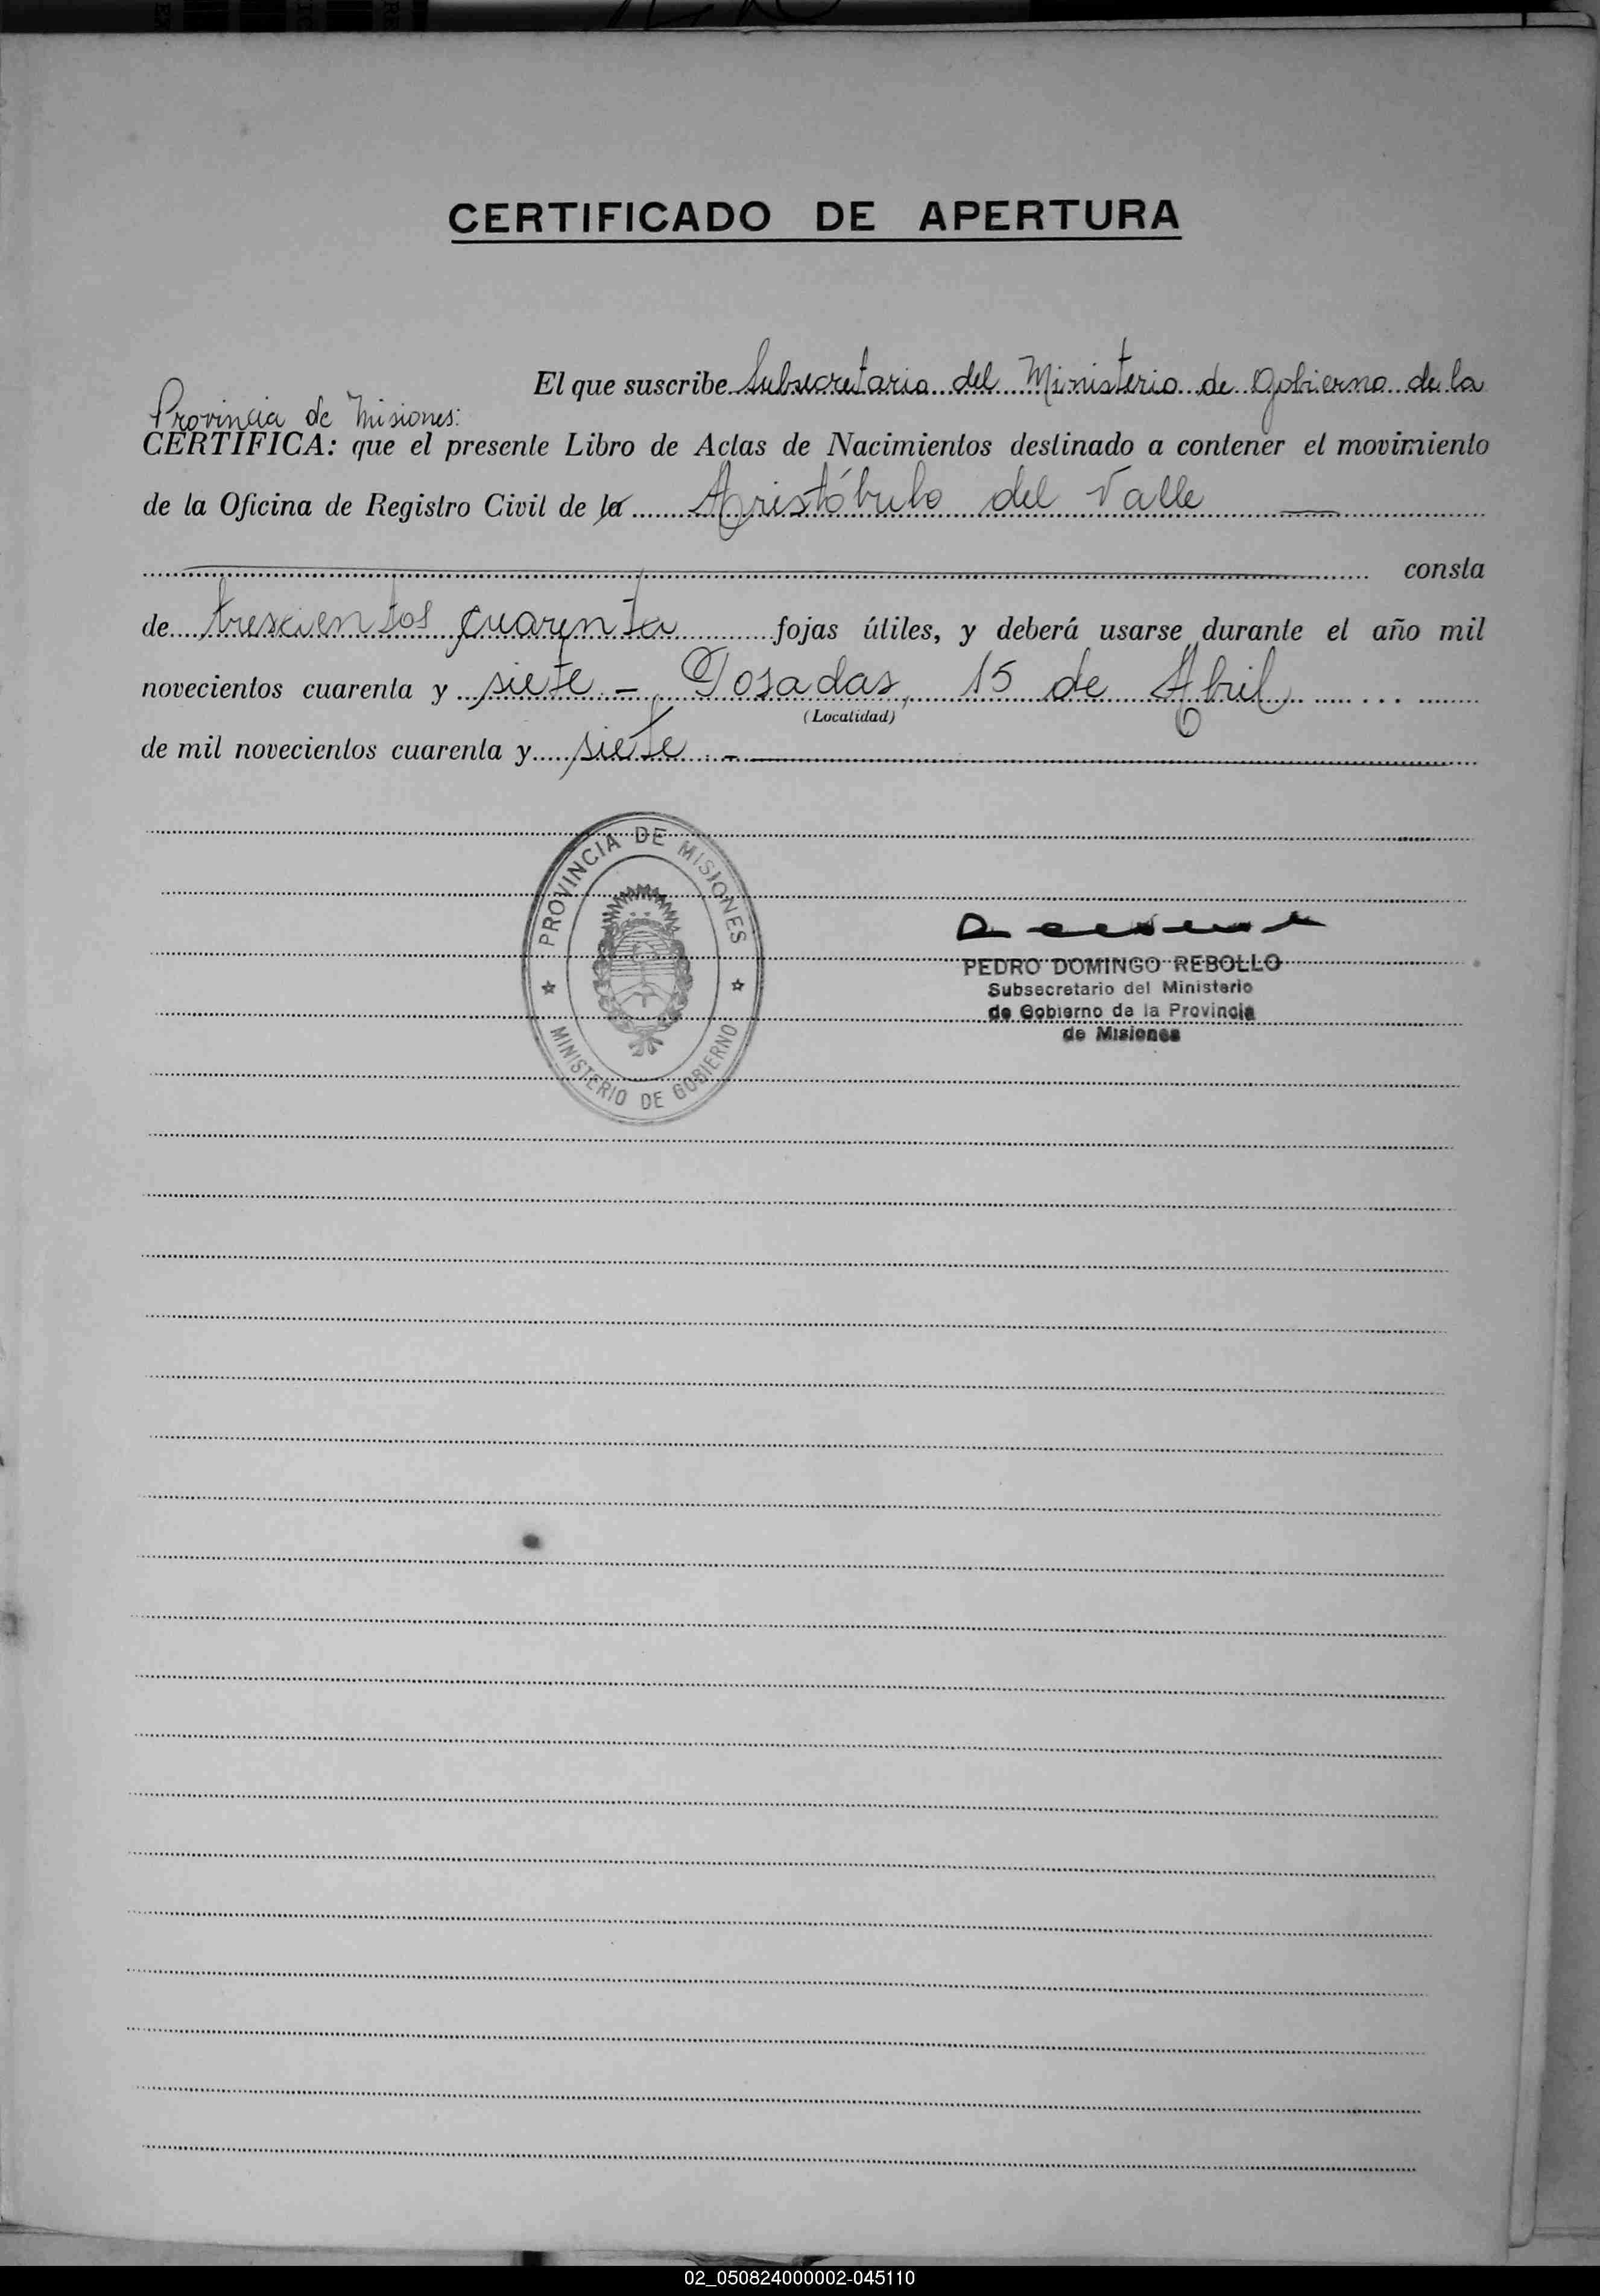 CERTIFICADO DE APERTURA
El que suscribe Subsecretario del Ministerio de Gobierno de la
Provincia de Misiones:
CERTIFICA: que el presente Libro de Actas de Nacimientos destinado a contener el movimiento
de la Oficina de Registro Civil de la Aristóbulo del Valle
consta
de trescientos cuarenta fojas útiles, y deberá usarse durante el año mil
novecientos cuarenta y siete - Posadas, 15 de Abril
(Localidad)
de mil novecientos cuarenta y siete . -
PROVINCIA DE MISIONES
MINISTERIO DE GOBIERNO
PEDRO DOMINGO REBOLLO
Subsecretario del Ministerio
de Gobierno de la Provincia
de Misiones
02_050824000002-045110